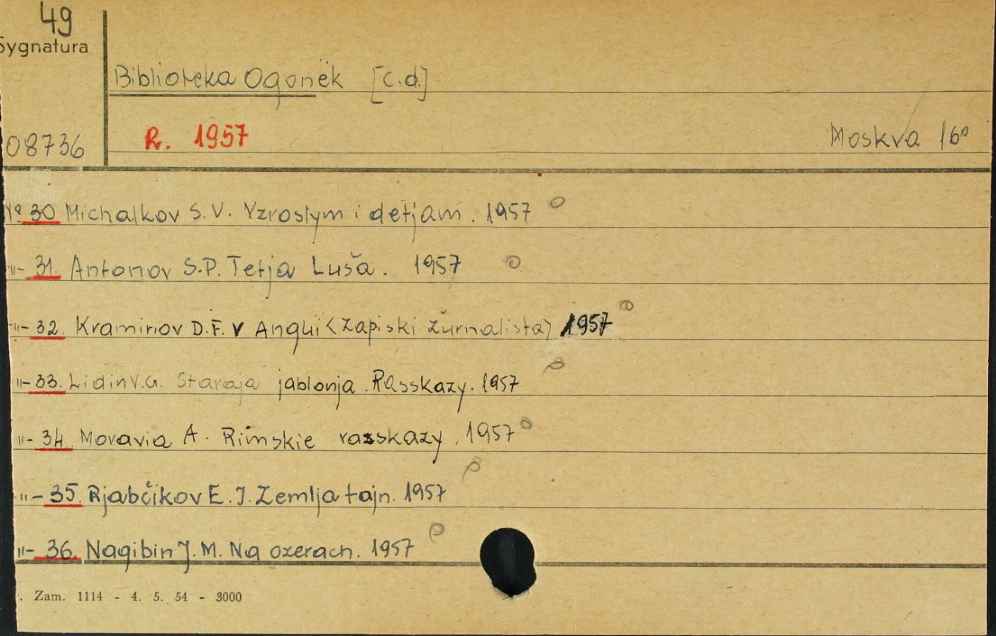 49
Sygnatura
Biblioteka Ogonëk [c.d.]
08736 R. 1957 Moskva 16°
№ 30 Michalkov S.V. Vzroslym i detjam. 1957
-"- 31. Antonov S.P. Tetja Luša. 1957
-"- 32. Kraminov D.F. V Anglii <Zapiski žurnalista> 1957
-"- 33. Lidin V.G. Staraja jablonja. Rasskazy. 1957
-"- 34. Moravia A. Rimskie rasskazy. 1957
-"- 35. Rjabčikov E.I. Zemlja tajn. 1957
-"- 36. Nagibin J.M. Na ozerach. 1957
. Zam. 1114 - 4. 5. 54 - 3000